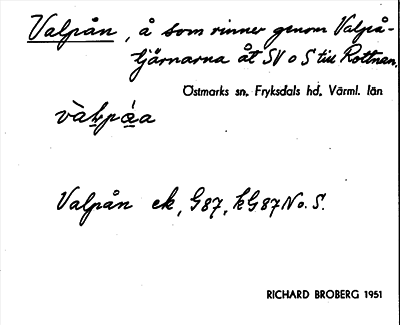 Valpån, å som rinner genom Valpå-
tjärnarna åt SV o S till Rottnan.
Östmarks sn, Fryksdals hd, Värml. län
Valpån ek, G87, kG87 N o. S.
RICHARD BROBERG 1951